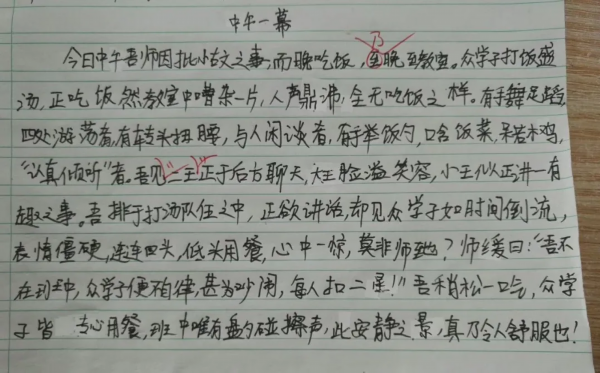 中午一幕
今日中午吾师因批小古文之事,而晚吃饭,乃晚至教室。众学子打饭盛
汤,正吃饭,然教室中嘈杂一片,人声鼎沸,全无吃饭之样。有手舞足蹈,
四处游荡者,有转头扭腰,与人闲谈者,有手举饭勺,口含饭菜,呆若木鸡,
“认真倾听”者。吾见“二王”正于后方聊天,大王脸溢笑容,小王似正讲一有
趣之事。吾排于打汤队伍之中,正欲讲话,却见众学子如时间倒流,
表情僵硬,连连回头,低头用餐,心中一惊,莫非师到?师缓曰:“吾不
在班中,众学子便不自律,甚为吵闹,每人扣二星!”吾稍松一口气,众学
子皆专心用餐,班中唯有盘勺碰擦声,此安静之景,真乃令人舒服也!